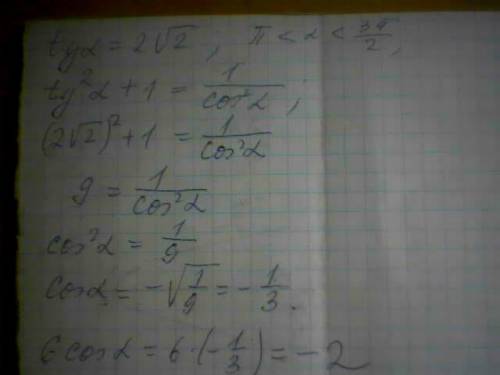 tgα = 2√2 , π < α < 3π/2 ,
tg²α + 1 = 1/cos²α ;
(2√2)² + 1 = 1/cos²α
9 = 1/cos²α
cos²α = 1/9
cosα = -√(1/9) = -1/3 .
6 cosα = 6·(-1/3) = -2